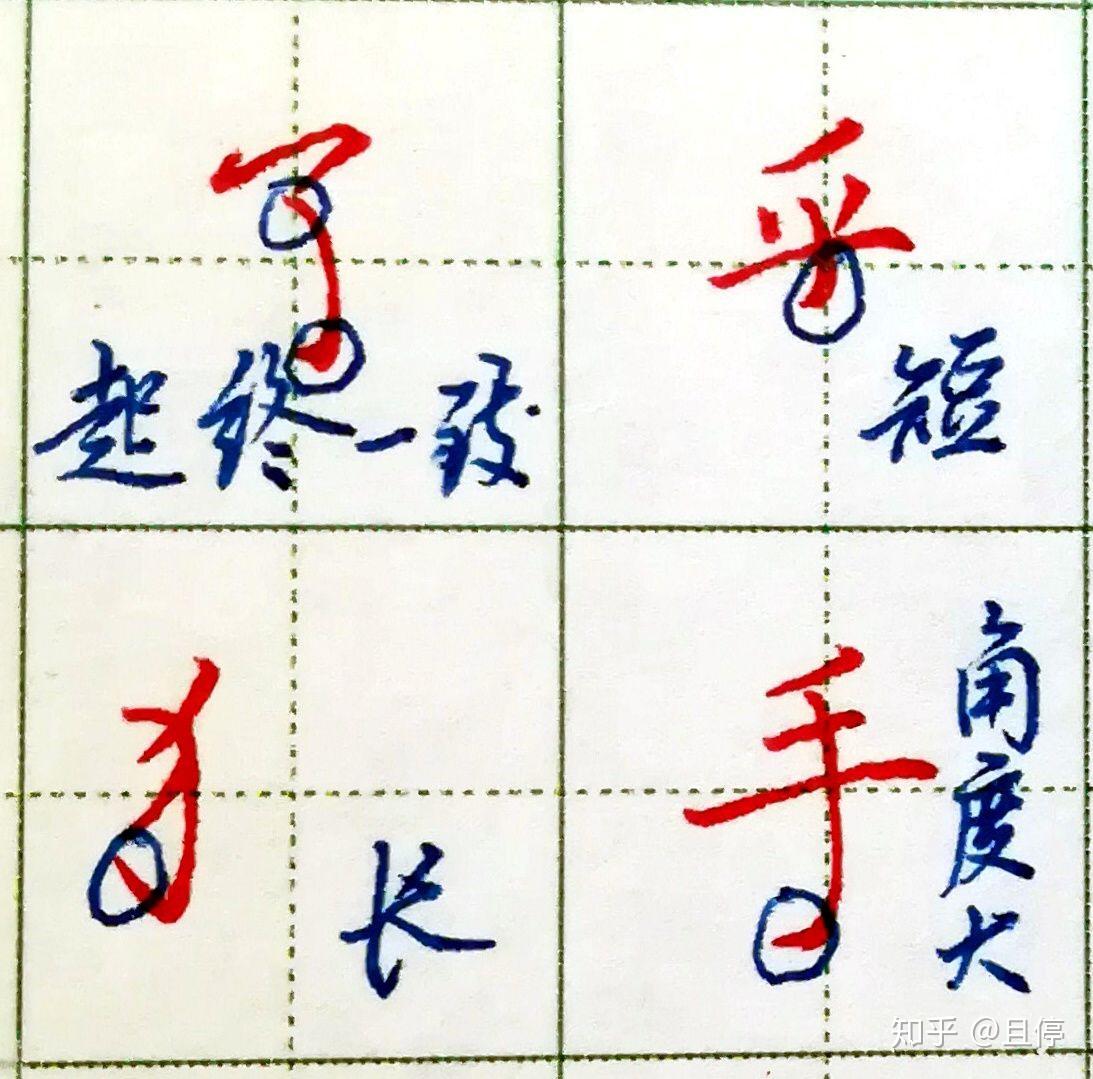 了
起终一致
乎
短
犭
长
手
角度大
知乎 @且停